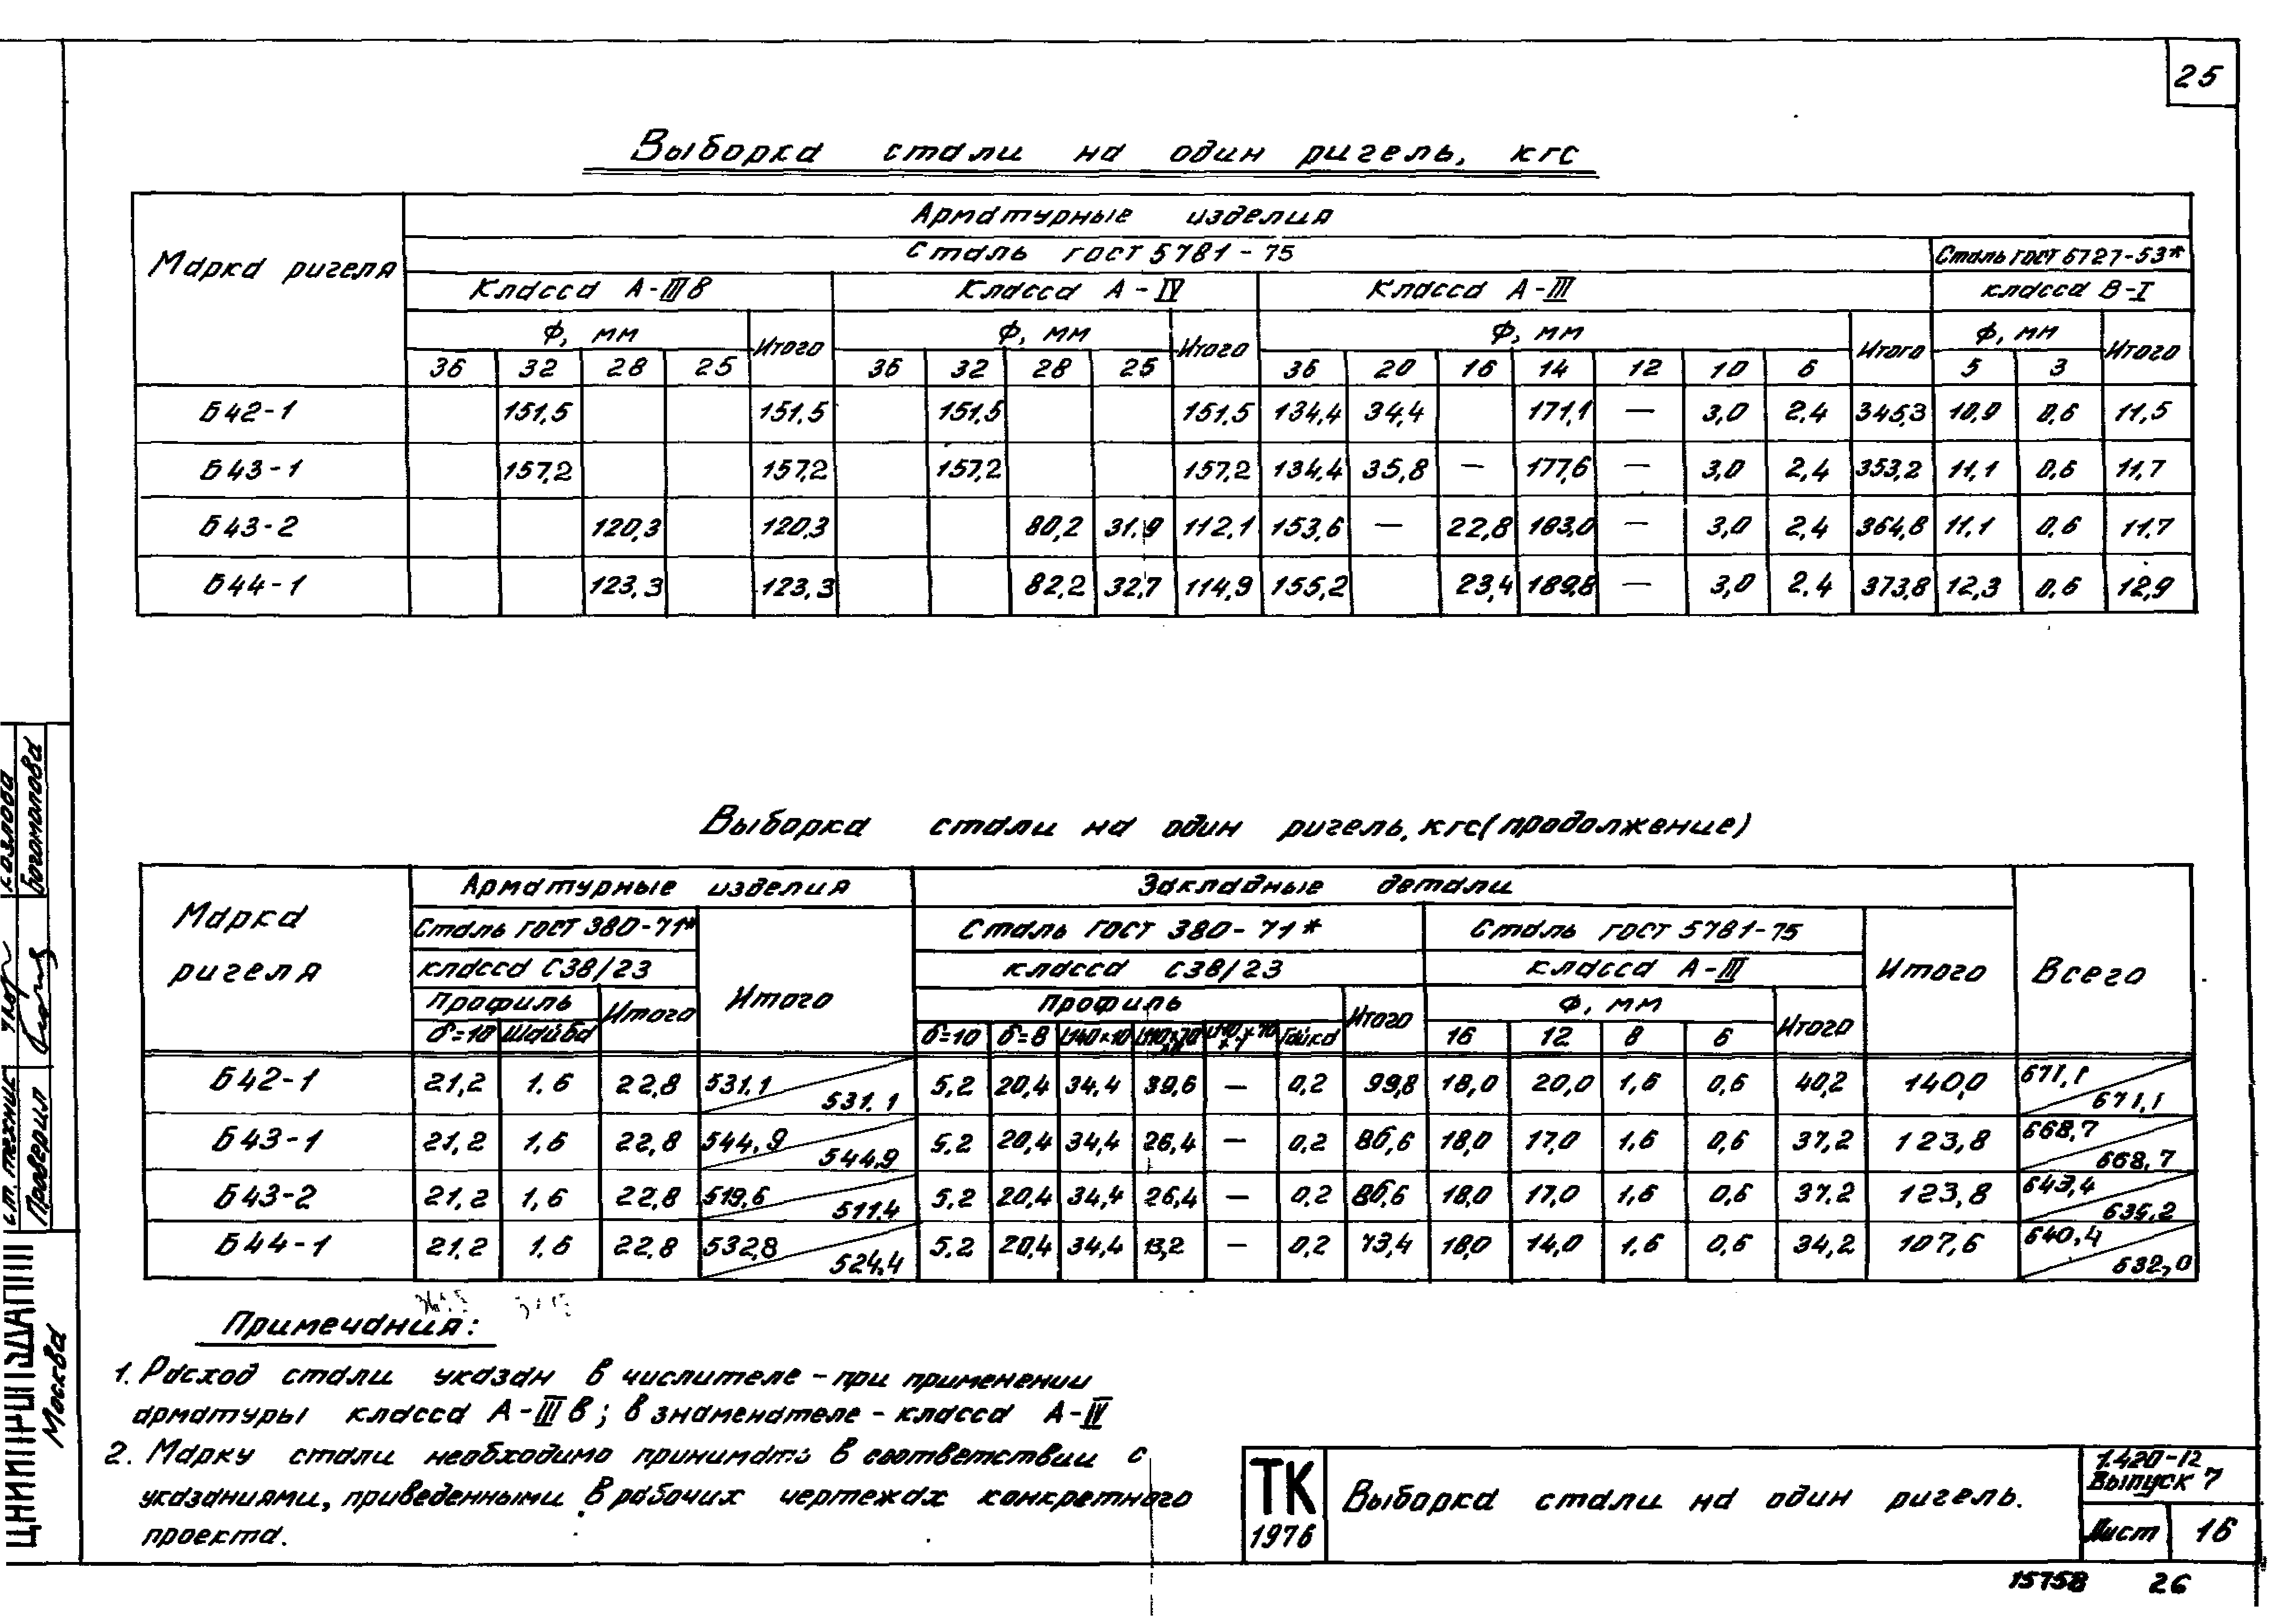 25
Выборка стали на один ригель, кгс
Марка ригеля
Арматурные изделия
Сталь ГОСТ 5781-75
Сталь ГОСТ 6727-53*
Класса А-IIIв
Класса А-IV
Класса А-III
класса В-I
Ф, мм Итого Ф, мм Итого Ф, мм Итого Ф, мм Итого
36 32 28 25 36 32 28 25 36 20 16 14 12 10 6 5 3
Б42-1 151,5 151,5 151,5 151,5 134,4 34,4 171,1 — 3,0 2,4 345,3 10,9 0,6 11,5
Б43-1 157,2 157,2 157,2 157,2 134,4 35,8 — 177,6 — 3,0 2,4 353,2 11,1 0,6 11,7
Б43-2 120,3 120,3 80,2 31,9 112,1 153,6 — 22,8 183,0 — 3,0 2,4 364,8 11,1 0,6 11,7
Б44-1 123,3 123,3 82,2 32,7 114,9 155,2 23,4 189,8 — 3,0 2,4 373,8 12,3 0,6 12,9
Выборка стали на один ригель, кгс (продолжение)
Марка ригеля
Арматурные изделия
Закладные детали
Всего
Сталь ГОСТ 380-71*
Итого
Сталь ГОСТ 380-71*
Сталь ГОСТ 5781-75
Итого
класса С38/23
класса С38/23
класса А-III
Профиль Итого Профиль Итого Ф, мм Итого
б=10 Шайба б=10 б=8 Гайка 16 12 8 6
Б42-1 21,2 1,6 22,8 531,1 531,1 5,2 20,4 34,4 39,6 — 0,2 99,8 18,0 20,0 1,6 0,6 40,2 140,0 671,1 671,1
Б43-1 21,2 1,6 22,8 544,9 544,9 5,2 20,4 34,4 26,4 — 0,2 86,6 18,0 17,0 1,6 0,6 37,2 123,8 668,7 668,7
Б43-2 21,2 1,6 22,8 519,6 511,4 5,2 20,4 34,4 26,4 — 0,2 86,6 18,0 17,0 1,6 0,6 37,2 123,8 643,4 635,2
Б44-1 21,2 1,6 22,8 532,8 524,4 5,2 20,4 34,4 13,2 — 0,2 73,4 18,0 14,0 1,6 0,6 34,2 107,6 640,4 632,0
Примечания:
1. Расход стали указан в числителе - при применении
арматуры класса А-IIIв; в знаменателе - класса А-IV
2. Марку стали необходимо принимать в соответствии с
указаниями, приведенными в рабочих чертежах конкретного
проекта.
ТК
1976
Выборка стали на один ригель.
1.420-12
Выпуск 7
Лист 16
15758 26
ст. техник Козлова
Проверил Богомолова
Москва